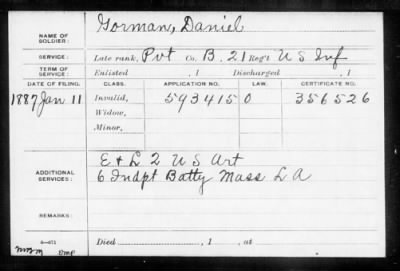 NAME OF SOLDIER: Gorman, Daniel
SERVICE: Late rank, Pvt Co. B. 21 Reg't U S Inf
TERM OF SERVICE: Enlisted , 1 Discharged , 1
DATE OF FILING. CLASS. APPLICATION NO. LAW. CERTIFICATE NO.
1887 Jan 11 Invalid, 593415 O 356526
Widow,
Minor,
ADDITIONAL SERVICES: E & L 2 U S Art
6 Indpt Batty Mass L A
REMARKS:
Died , 1 , at